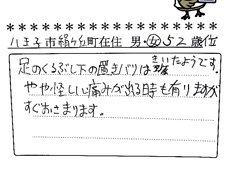 * * * * * * * * * * * * * * * * * * *
八王子市絹ヶ丘町在住 男・女 52歳位
足のくるぶし下の置きバリは効いたようです。
やや怪しい痛みが出る時も有りますが
すぐおさまります。